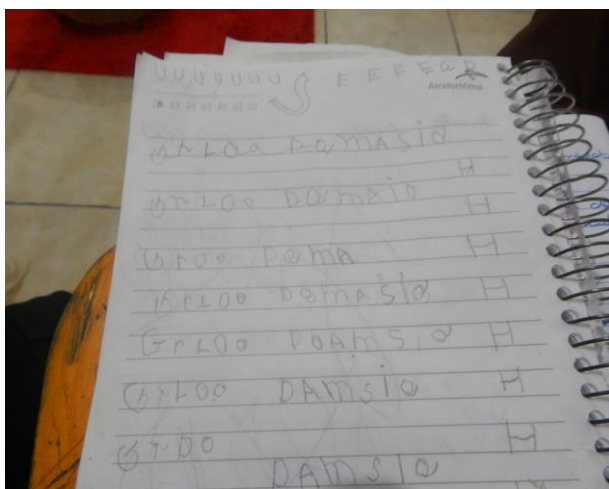 U U U U U U U E E F E G D
ArcelorMittal
GrLOo DamASio
H
GrLOo DamAio
H
Groo Dama H
GrLOO DamASio H
GrLOO DAmSio H
GrLOO DAmSio H
GrDO H
DAmSIo